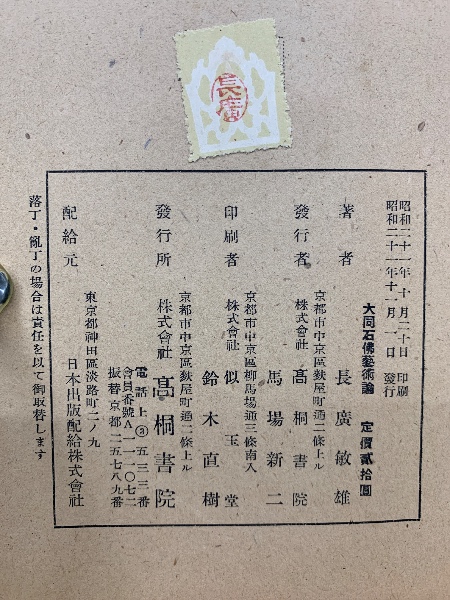 長廣
昭和二十一年十月二十日 印刷
昭和二十一年十一月 日 發行
大同石佛藝術論 定價貳拾圓
著者 長廣敏雄
京都市中京區麩屋町通二條上ル
發行者 株式會社 高桐書院
馬場新二
京都市中京區柳馬場通三條南入
印刷者 株式會社 似玉堂
鈴木直樹
京都市中京區麩屋町通二條上ル
發行所 株式會社 高桐書院
電話上③五三三番
會員番號A一一一〇七二
振替京都二五七八九番
東京都神田區淡路町二ノ九
配給元 日本出版配給株式會社
落丁・亂丁の場合は責任を以て御取替します